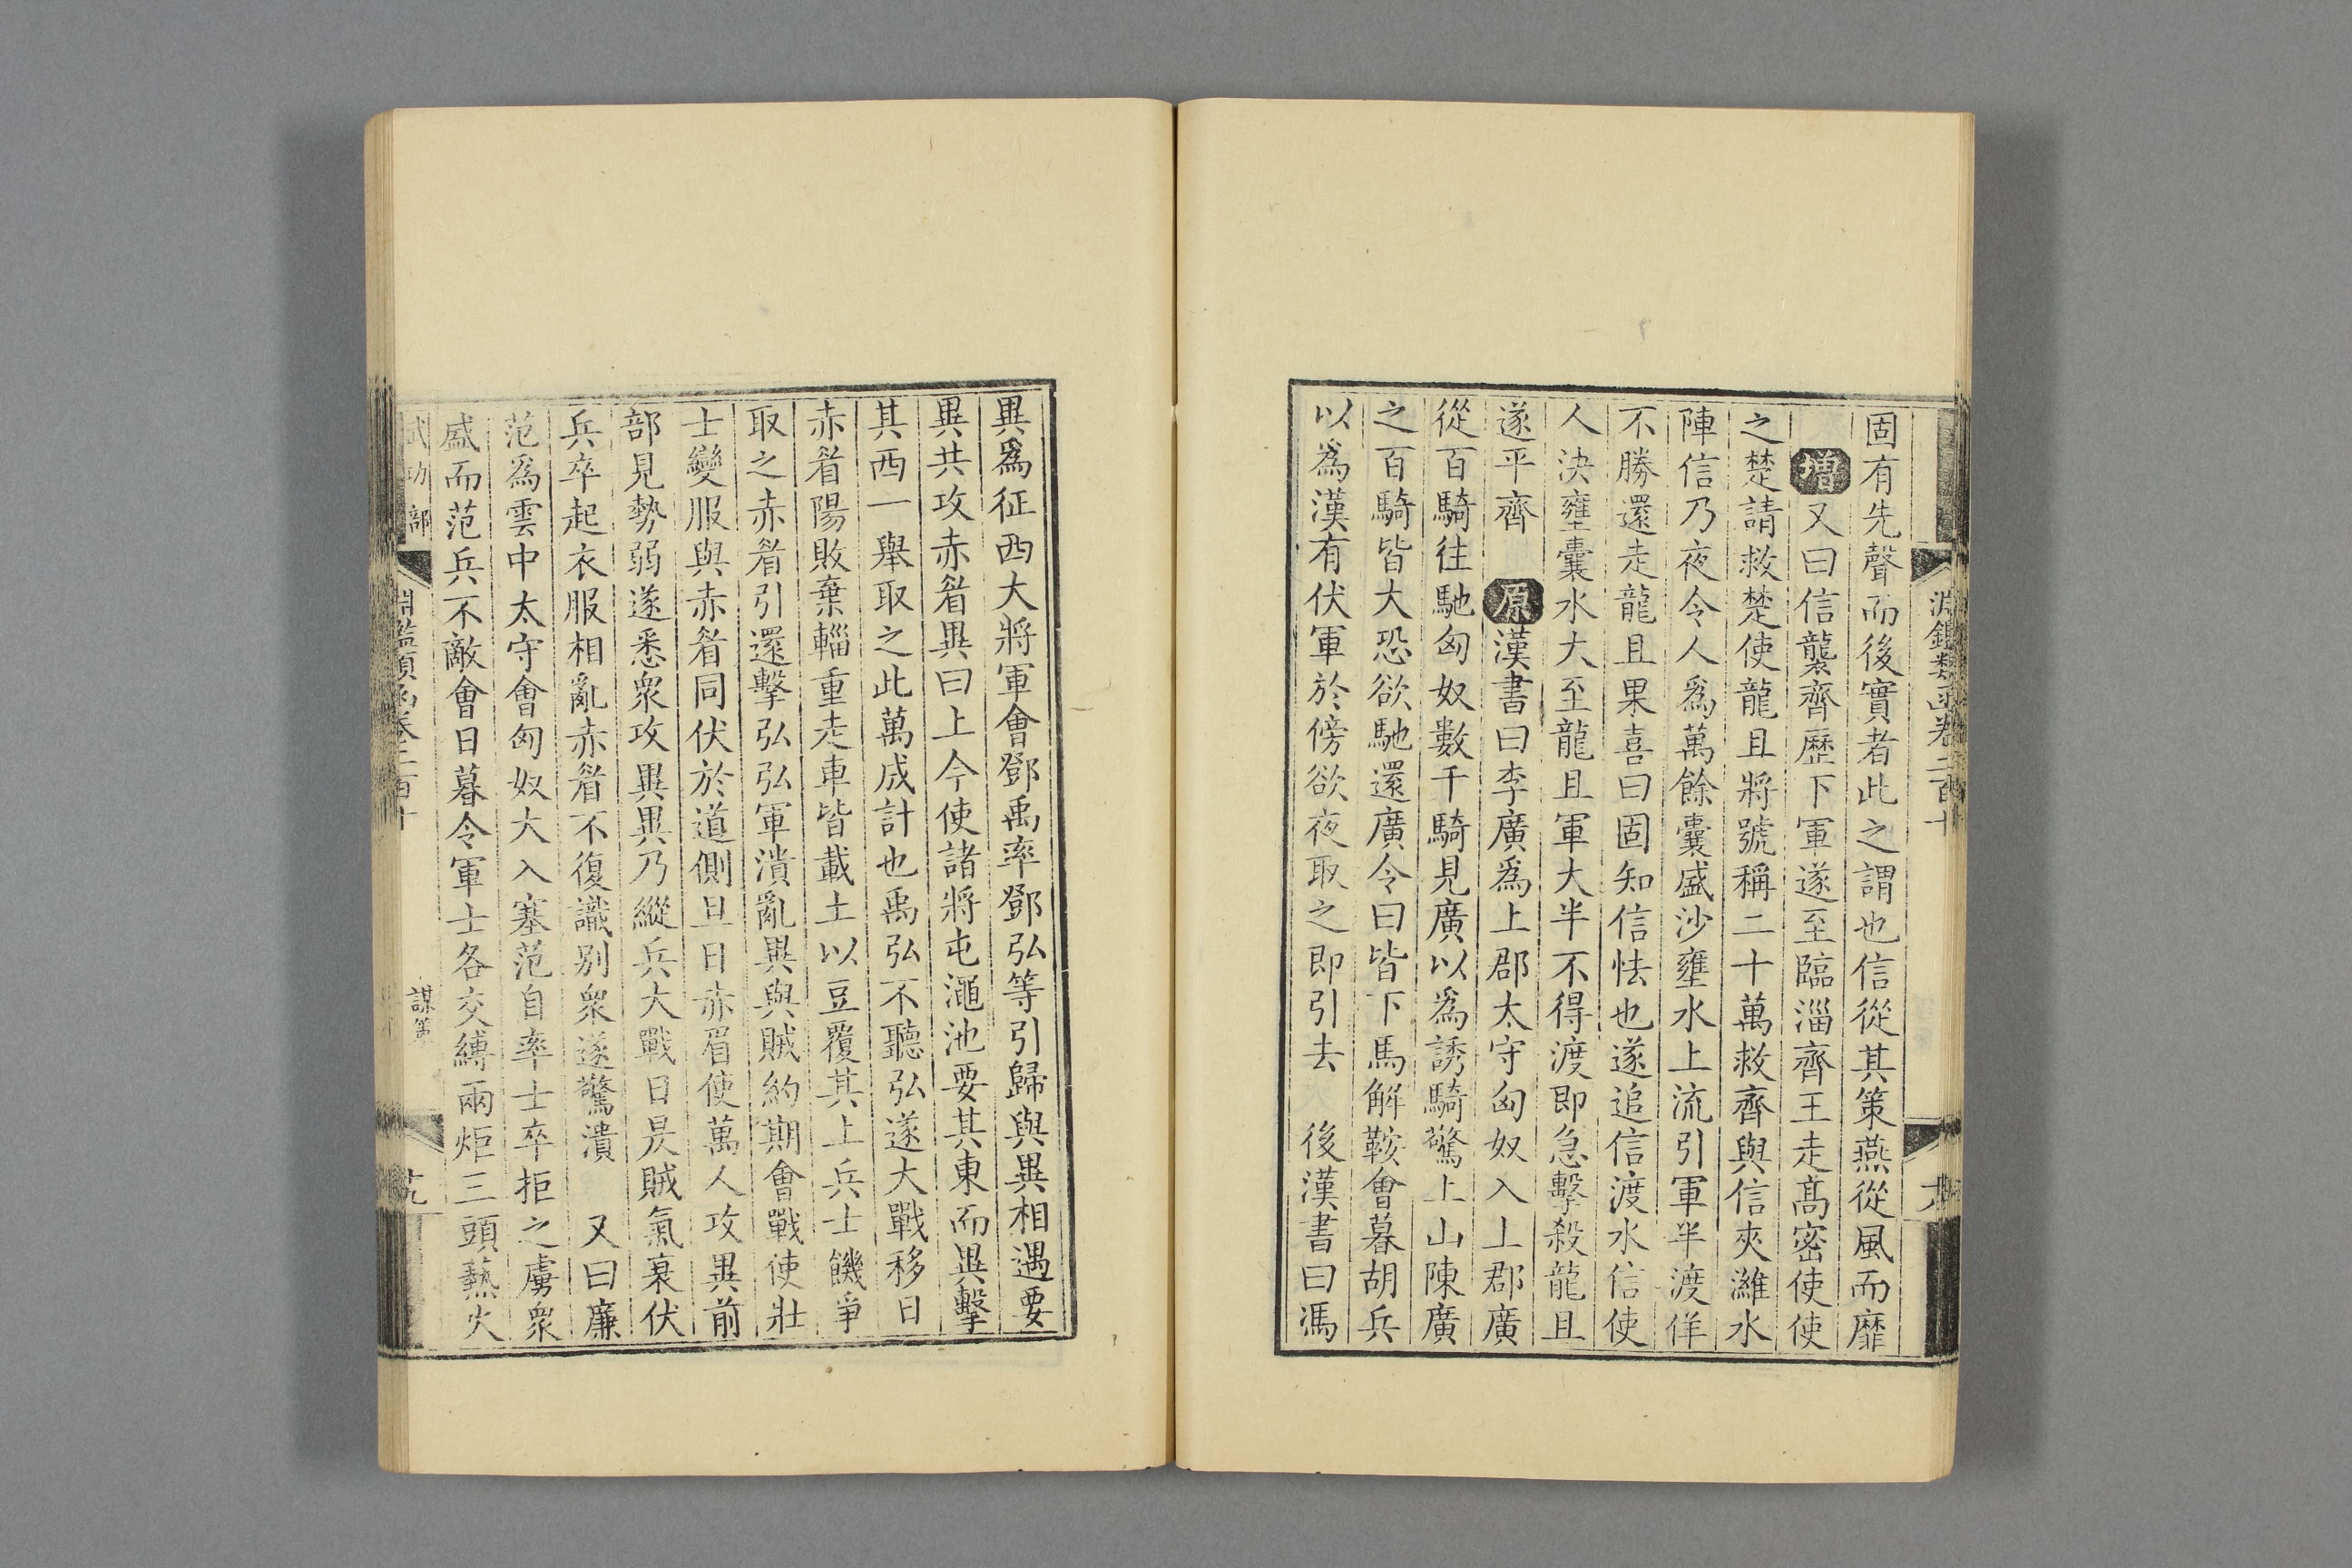 淵鑑類函卷二百十
固有先聲而後實者此之謂也信從其策燕從風而靡
增又曰信襲齊歷下軍遂至臨淄齊王走髙密使使
之楚請救楚使龍且將號稱二十萬救齊與信夾濰水
陣信乃夜令人爲萬餘囊盛沙壅水上流引軍半渡佯
不勝還走龍且果喜曰固知信怯也遂追信渡水信使
人決壅囊水大至龍且軍大半不得渡即急擊殺龍且
遂平齊 原漢書曰李廣爲上郡太守匈奴入上郡廣
從百騎往馳匈奴數千騎見廣以爲誘騎驚上山陳廣
之百騎皆大恐欲馳還廣令曰皆下馬解鞍會暮胡兵
以爲漢有伏軍於傍欲夜取之即引去 後漢書曰馮
異爲征西大將軍會鄧禹率鄧弘等引歸與異相遇要
異共攻赤眉異曰上今使諸將屯澠池要其東而異擊
其西一舉取之此萬成計也禹弘不聽弘遂大戰移日
赤眉陽敗棄輜重走車皆載土以豆覆其上兵士饑爭
取之赤眉引還擊弘弘軍潰亂異與賊約期會戰使壯
士變服與赤眉同伏於道側旦日赤眉使萬人攻異前
部見勢弱遂悉衆攻異異乃縱兵大戰日昃賊氣衰伏
兵卒起衣服相亂赤眉不復識别衆遂驚潰 又曰廉
范爲雲中太守會匈奴大入塞范自率士卒拒之虜衆
盛而范兵不敵會日暮令軍士各交縛兩炬三頭爇火
武功部 淵鑑類函卷二百十 謀策